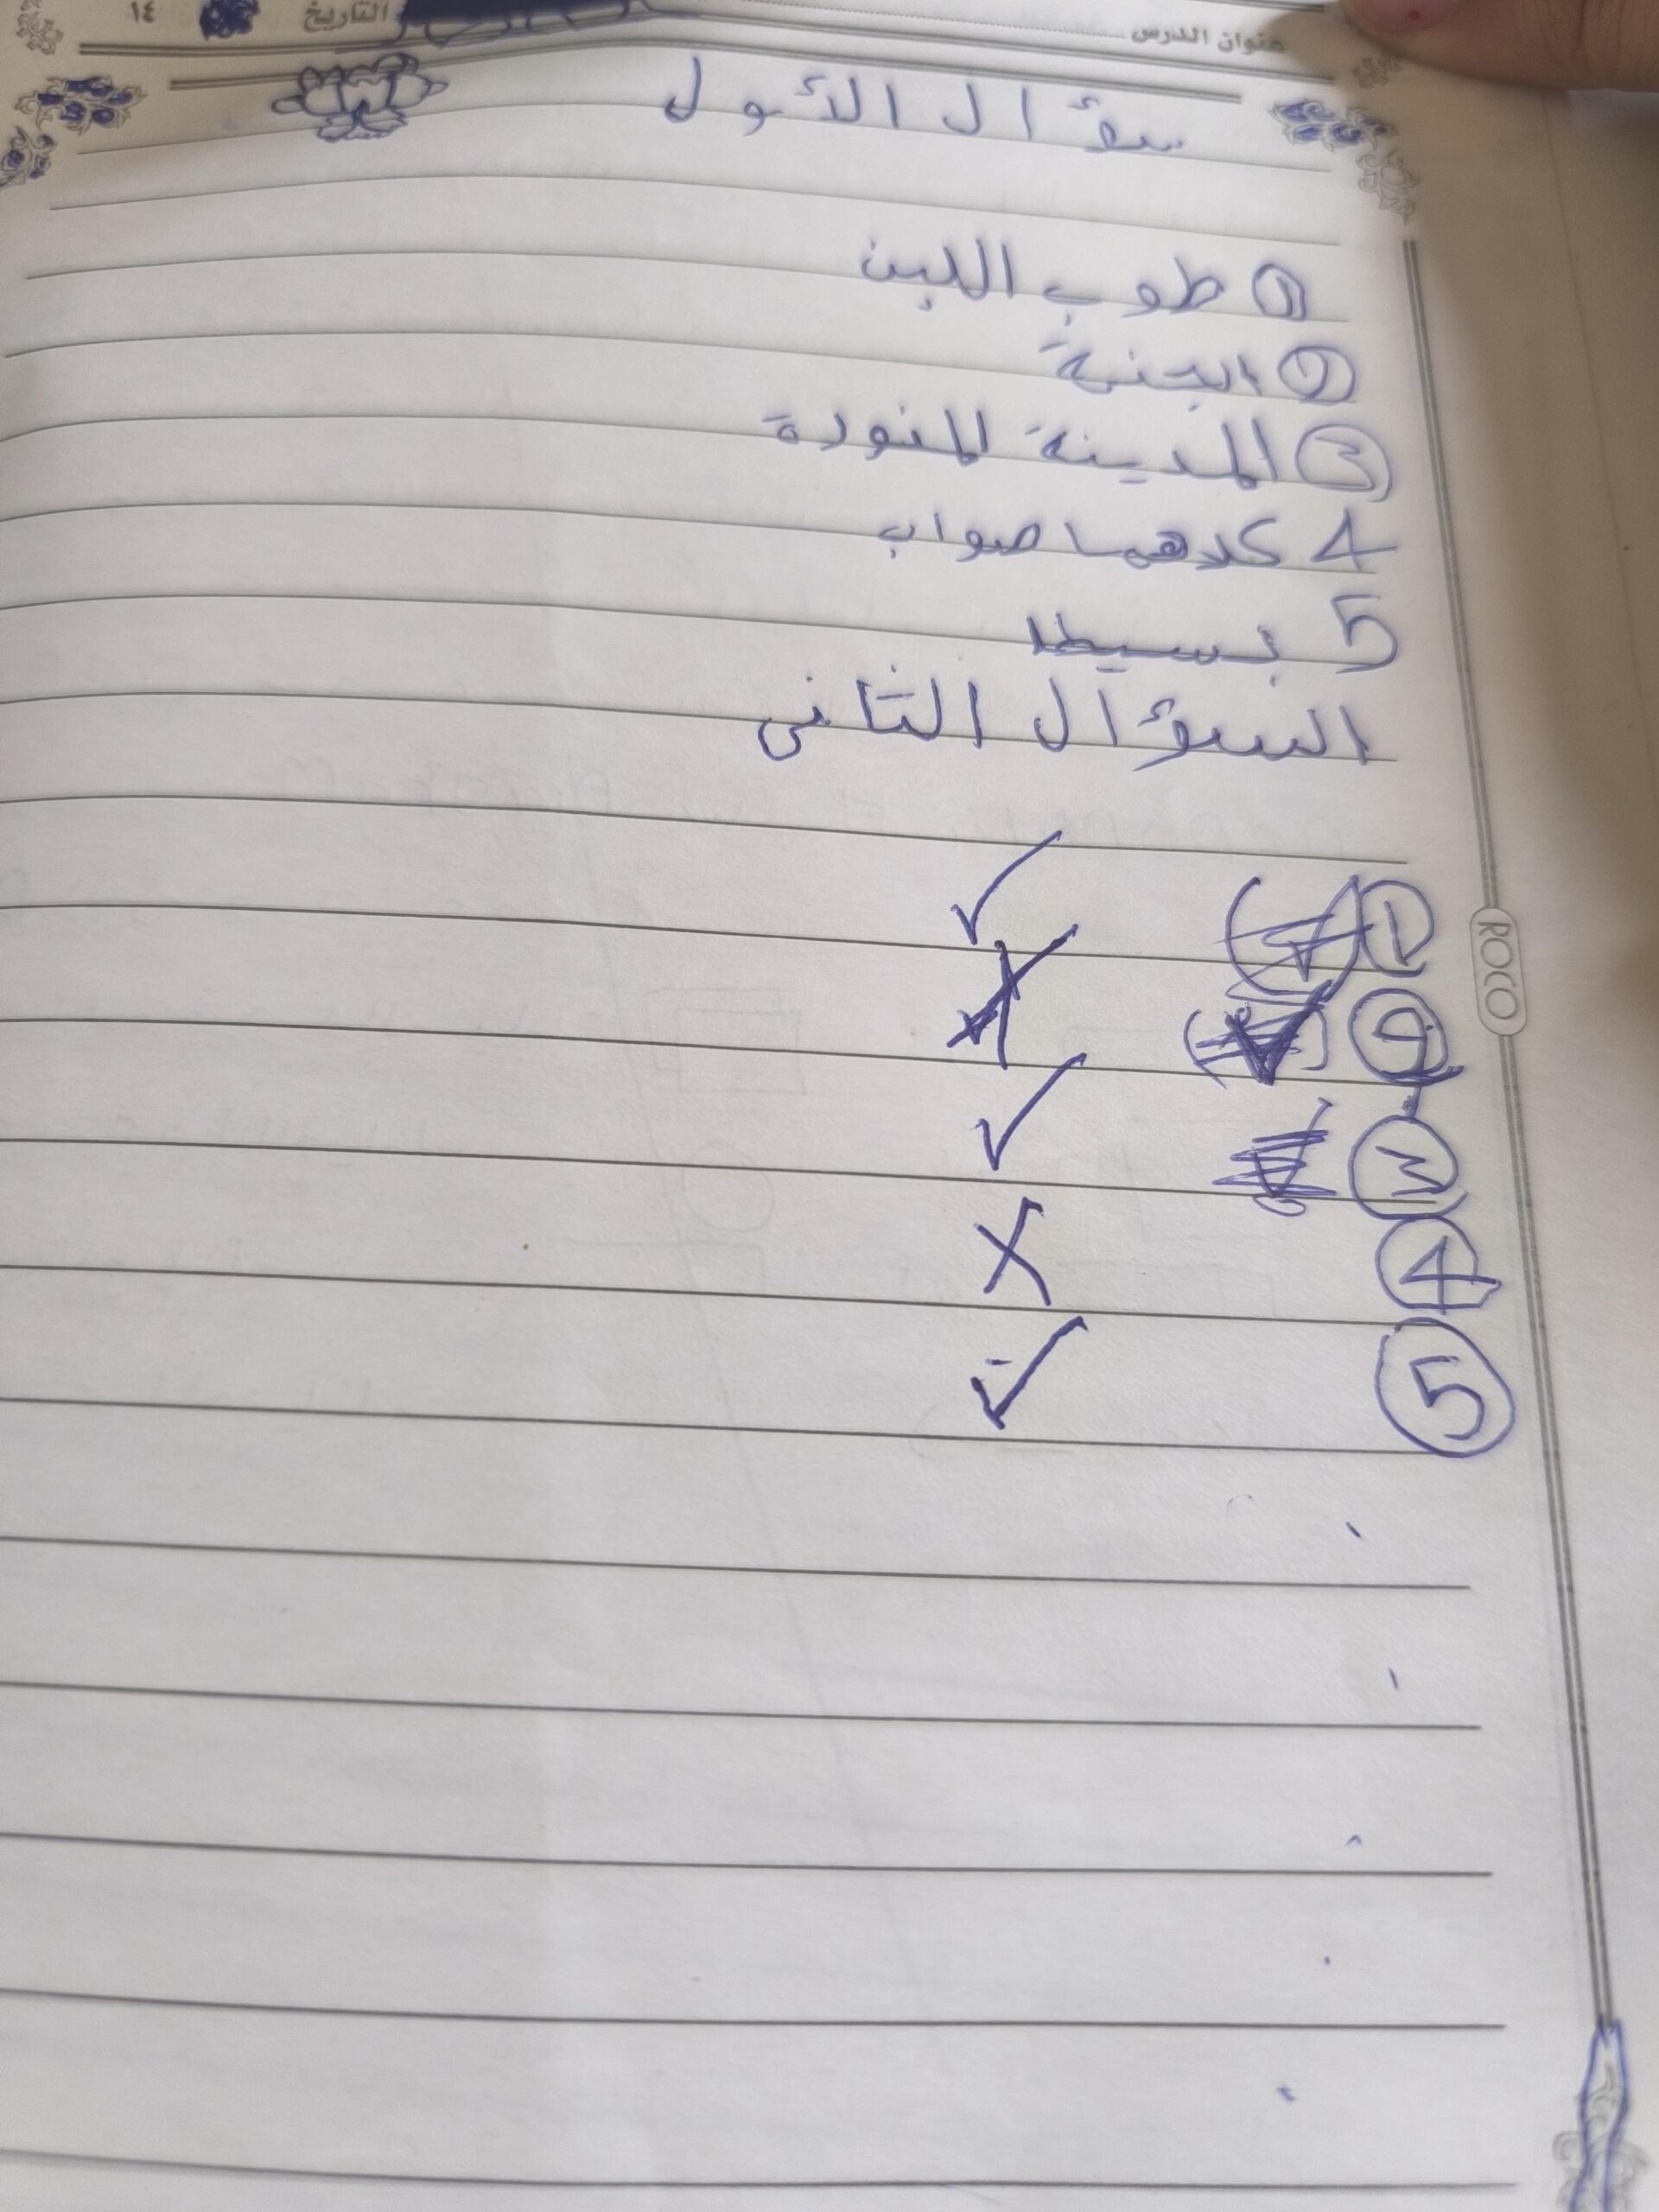 عنوان الدرس التاريخ ١٤
سؤال الأول
① طوب اللبن
② الجنة
③ المدينة المنورة
4 كلاهما صواب
5 بسيطا
السؤال الثاني
① ✓
② X
③ ✓
④ X
⑤ ✓
ROCO